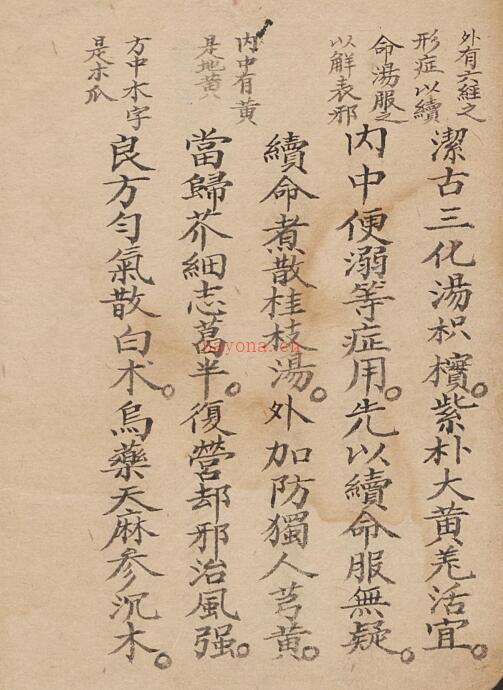 外有六經之
形症以續
命湯服之
以解表邪
内中有黄
是地黄
方中木字
是木瓜
潔古三化湯枳檳。紫朴大黄羌活宜。
内中便溺等症用。先以續命服無疑。
續命煮散桂枝湯。外加防獨人芎黄。
當歸芥細志葛半。復營却邪治風强。
良方勻氣散白术。烏藥天麻參沉木。
nayona.cn